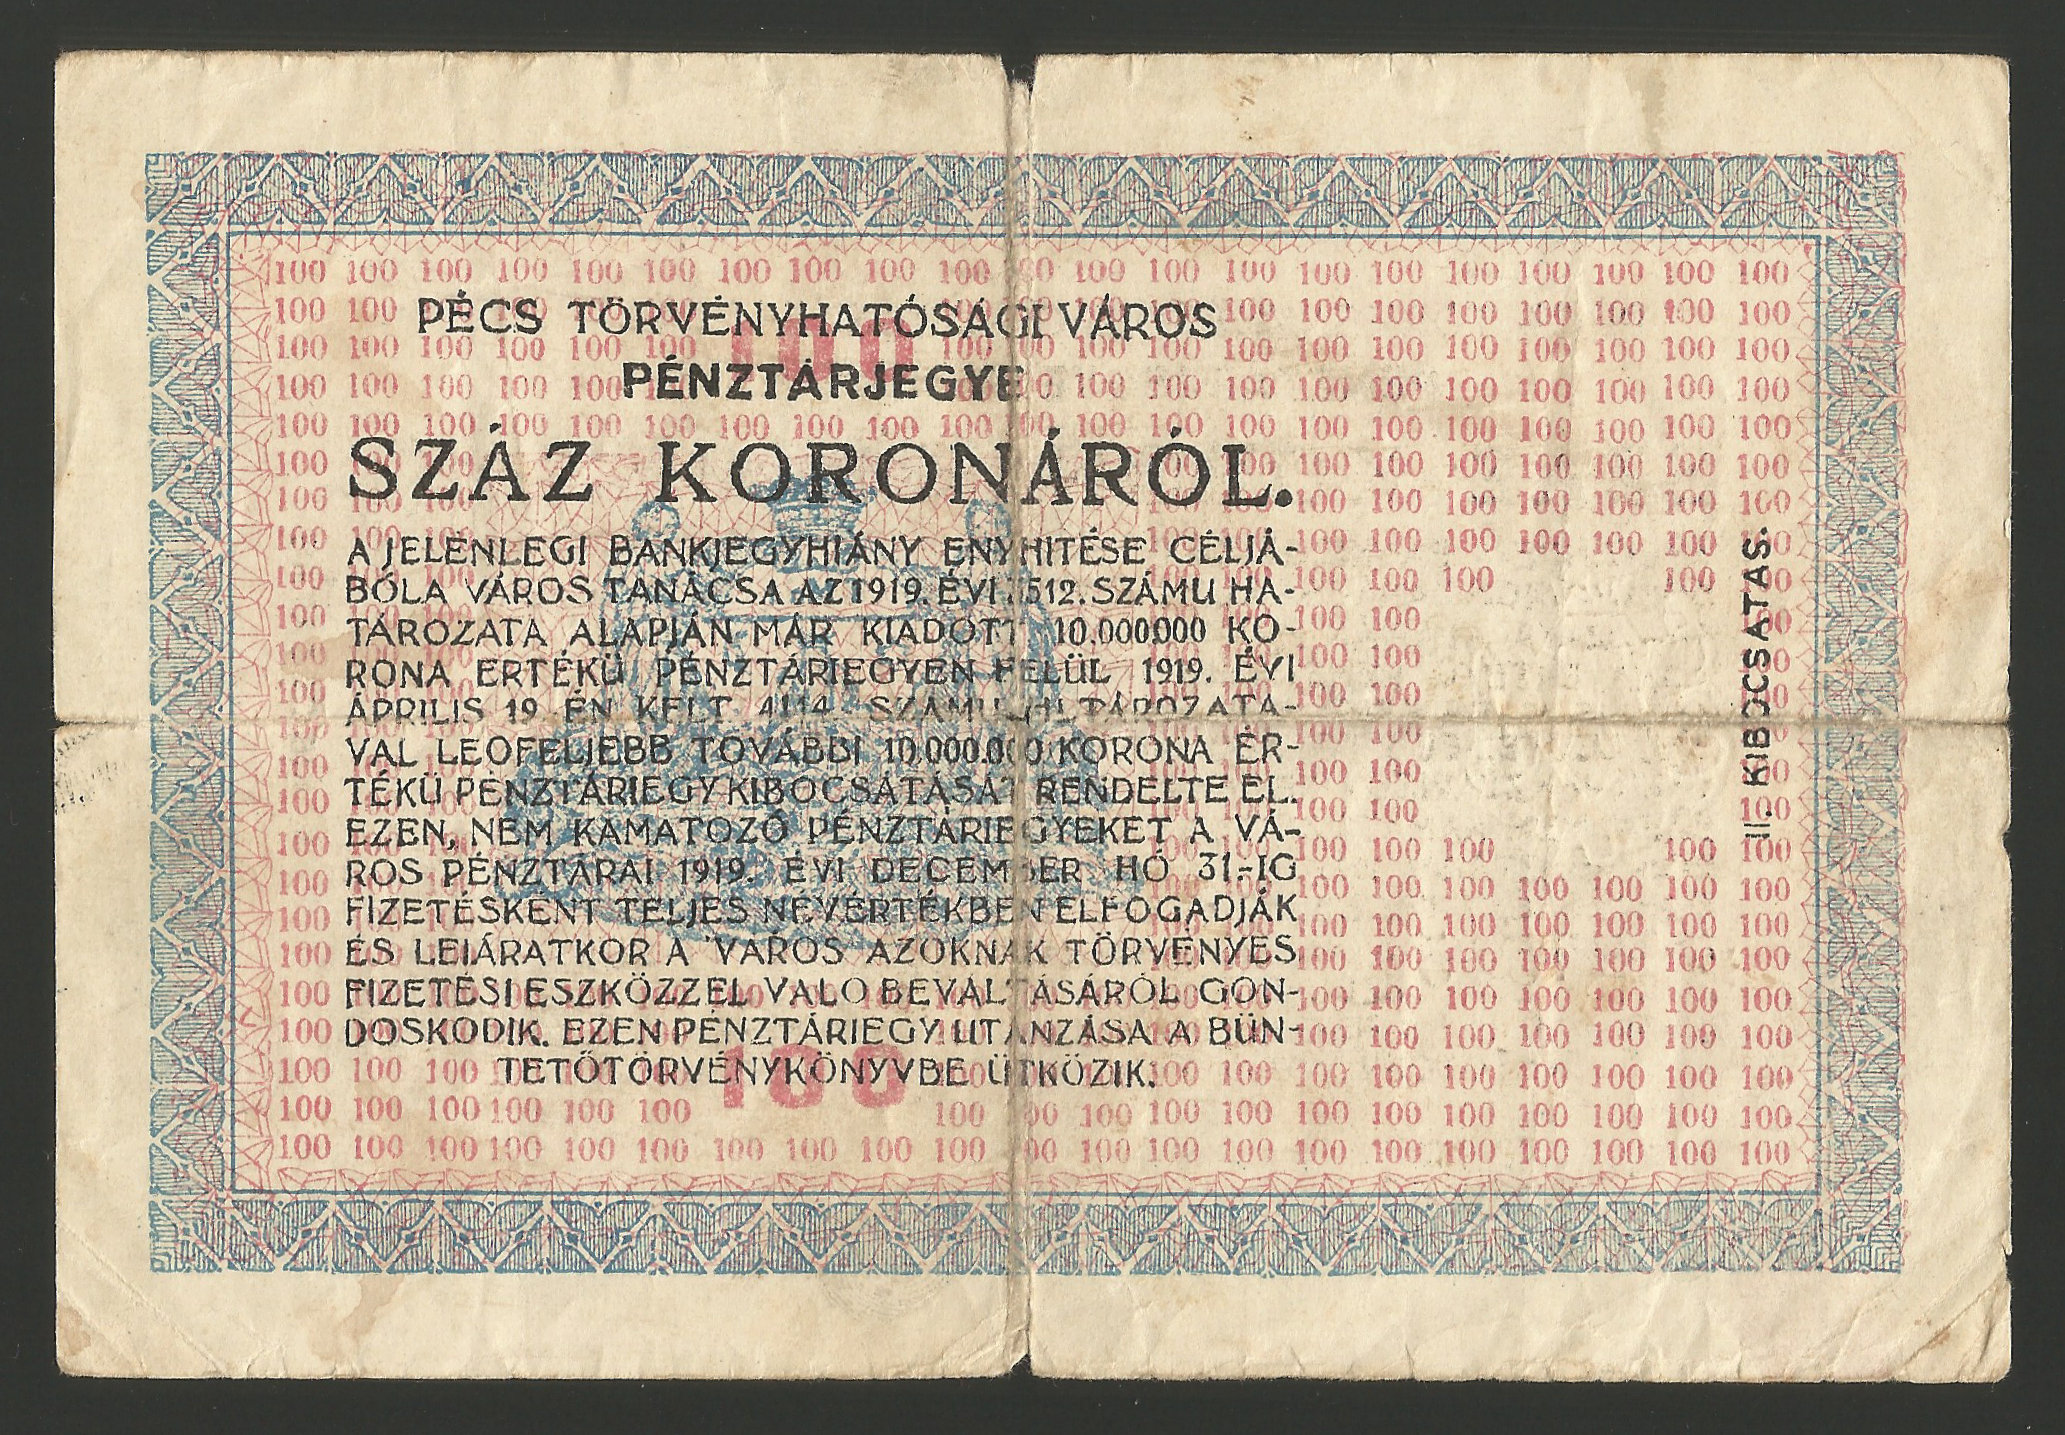 PÉCS TÖRVÉNYHATÓSÁGI VÁROS
PÉNZTÁRJEGYE
SZÁZ KORONÁRÓL.
A JELENLEGI BANKJEGYHIÁNY ENYHITÉSE CÉLJÁ-
BÓL A VÁROS TANÁCSA AZ 1919. ÉVI 512. SZÁMU HA-
TÁROZATA ALAPJÁN MÁR KIADOTT 10.000000 KO-
RONA ERTÉKÜ PÉNZTÁRJEGYEN FELÜL 1919. ÉVI
ÁPRILIS 19 ÉN KELT SZÁMU HATÁROZATA-
VAL LEGFELJEBB TOVÁBBI 10.000.000 KORONA ÉR-
TÉKÜ PÉNZTÁRJEGY KIBOCSÁTÁSÁT RENDELTE EL.
EZEN, NEM KAMATOZÓ PÉNZTÁRJEGYEKET A VÁ-
ROS PÉNZTÁRAI 1919. ÉVI DECEMBER HÓ 31.-IG
FIZETÉSKÉNT TELJES NÉVÉRTÉKBEN ELFOGADJÁK
ÉS LEJÁRATKOR A VÁROS AZOKNAK TÖRVÉNYES
FIZETÉSI ESZKÖZZEL VALÓ BEVÁLTÁSÁRÓL GON-
DOSKODIK. EZEN PÉNZTÁRJEGY UTÁNZÁSA A BÜN-
TETŐTÖRVÉNYKÖNYVBE ÜTKÖZIK.
100
100
II. KIBOCSÁTÁS.